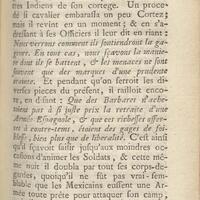 tres Indiens de son cortege. Un proce-
dé si cavalier embarassa un peu Cortez;
mais il revint en un moment; & en s'a-
dressant à ses Officiers il leur dit en riant:
Nous verrons comment ils soutiendront la ga-
geure. En tout cas, nous sçavons la manie-
re dont ils se battent, & les menaces ne sont
souvent que des marques d'une prudente
crainte. Et pendant qu'on serroit les di-
verses pieces du présent, il railloit enco-
re, en disant: Que des Barbares n'ache-
toient pas à si juste prix la retraite d'une
Armée Espagnole, & que ces richesses offer-
tes à contre-tems, étoient des gages de foi-
blesse, bien plus que de liberalité. C'est ainsi
qu'il sçavoit saisir jusqu'aux moindres oc-
casions d'animer les Soldats, & cette mê-
me nuit il doubla par tout ses corps-de-
gardes, quoiqu'il ne fût pas vrai-sem-
blable que les Mexicains eussent une Ar-
mée toute prête pour attaquer son camp,